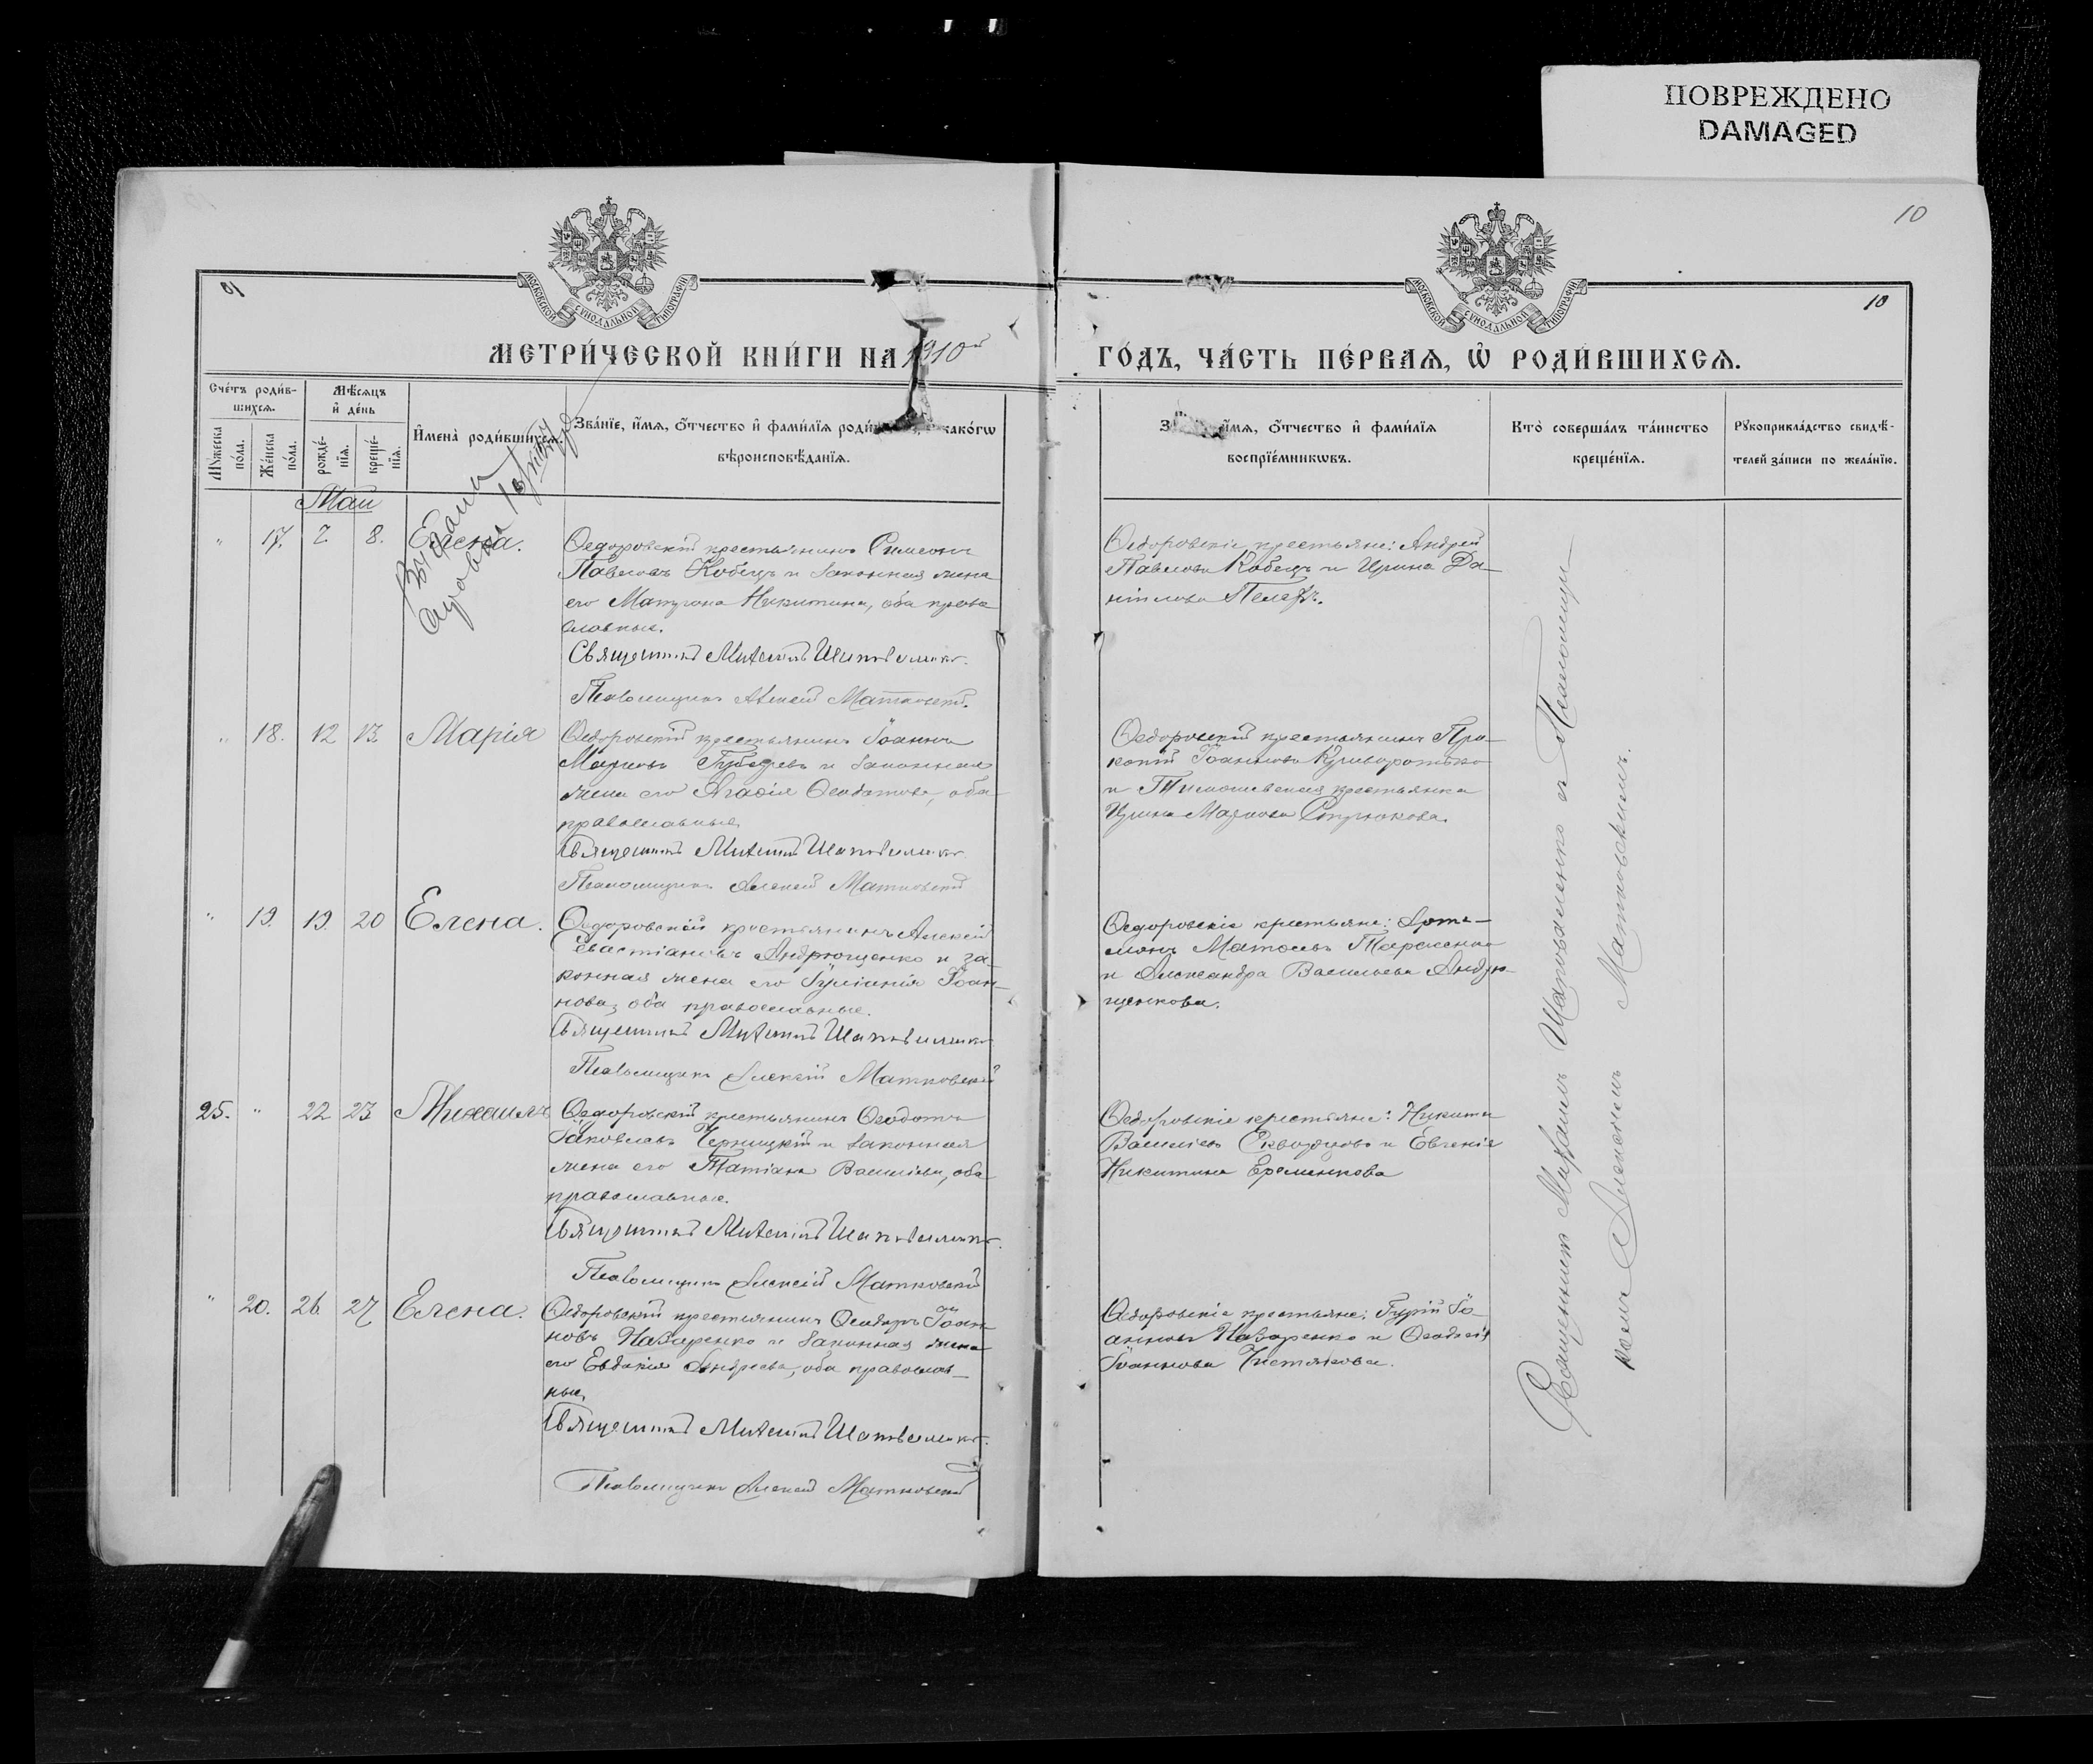 ПОВРЕЖДЕНО
DAMAGED
10
10
10
МОСКОВСКОЙ СѴНОДАЛЬНОЙ ТИПОГРАФІИ
МОСКОВСКОЙ СѴНОДАЛЬНОЙ ТИПОГРАФІИ
МЕТРИ́ЧЕСКОЙ КНИ́ГИ НА 1910й
ГО́ДЪ, ЧА́СТЬ ПЕ́РВАѦ, Ѡ҆ РОДИ́ВШИХСѦ.
Сче́тъ роди́в-
шихсѧ.
Мѣ́сѧцъ
и҆ де́нь
Мꙋ́жеска
по́ла.
Же́нска
по́ла.
рожде́-
нїѧ.
креще́-
нїѧ.
И҆мена̀ роди́вшихсѧ.
Зва́нїе, и҆́мѧ, ѻ҆́тчество и҆ фами́лїѧ роди́ како́гѡ
вѣроисповѣ́данїѧ.
З и҆́мѧ, ѻ҆́тчество и҆ фами́лїѧ
воспрїе́мникѡвъ.
Кто̀ соверша́лъ та́инство
креще́нїѧ.
Рꙋкоприкла́дство свидѣ́-
телей за́писи по жела́нїю.
Май
" 17. 7. 8. Елена.
Ѳедоровскій крестьянинъ Симеонъ
Павловъ Кобецъ и законная жена
его Матрона Никитина, оба право
славные.
Священникъ Михаилъ Шаповаленко.
Псаломщикъ Алексѣй Матковскій.
Ѳедоровскіе крестьяне: Андрей
Павловъ Кобецъ и Ирина Да-
нилова
" 18. 12 13. Марія
Ѳедоровскій крестьянинъ Іоаннъ
Марковъ и законная
жена его Агаѳія Ѳеодотова, оба
православные.
Священникъ Михаилъ Шаповаленко
Псаломщикъ Алексѣй Матковскій
Ѳедоровскій крестьянинъ Про-
копій Іоанновъ Криворотько
и Тимошевская крестьянка
Ирина Маркова Стрюкова.
" 19. 19. 20 Елена.
Ѳедоровскій крестьянинъ Алексѣй
Севастіановъ Андрющенко и за-
конная жена его Іуліанія Іоан-
нова, оба православные.
Священникъ Михаилъ Шаповаленко
Псаломщикъ Алексѣй Матковскій
Ѳедоровскіе крестьяне: Арте-
монъ Тарасенко
и Александра Васильева Андрю-
щенкова.
25. " 22 23 Михаилъ
Ѳедоровскій крестьянинъ Ѳеодотъ
Іаковлевъ Черницкій и законная
жена его Татіана Василіева, оба
православные.
Священникъ Михаилъ Шаповаленко.
Псаломщикъ Алексѣй Матковскій
Ѳедоровскіе крестьяне: Никита
Василіевъ Скворцовъ и Евгенія
Никитина Еременкова
" 20. 26 27 Елена.
Ѳедоровскій крестьянинъ Ѳеодоръ Іоан-
новъ Назаренко и законная жена
его Евдокія Андреева, оба православ-
ные.
Священникъ Михаилъ Шаповаленко.
Псаломщикъ Алексѣй Матковскій
Ѳедоровскіе крестьяне: Гурій Іо-
анновъ Назаренко и Ѳеодосія
Іоаннова Чистякова.
Священникъ Михаилъ Шаповаленко съ Псаломщи-
комъ Алексѣемъ Матковскимъ.